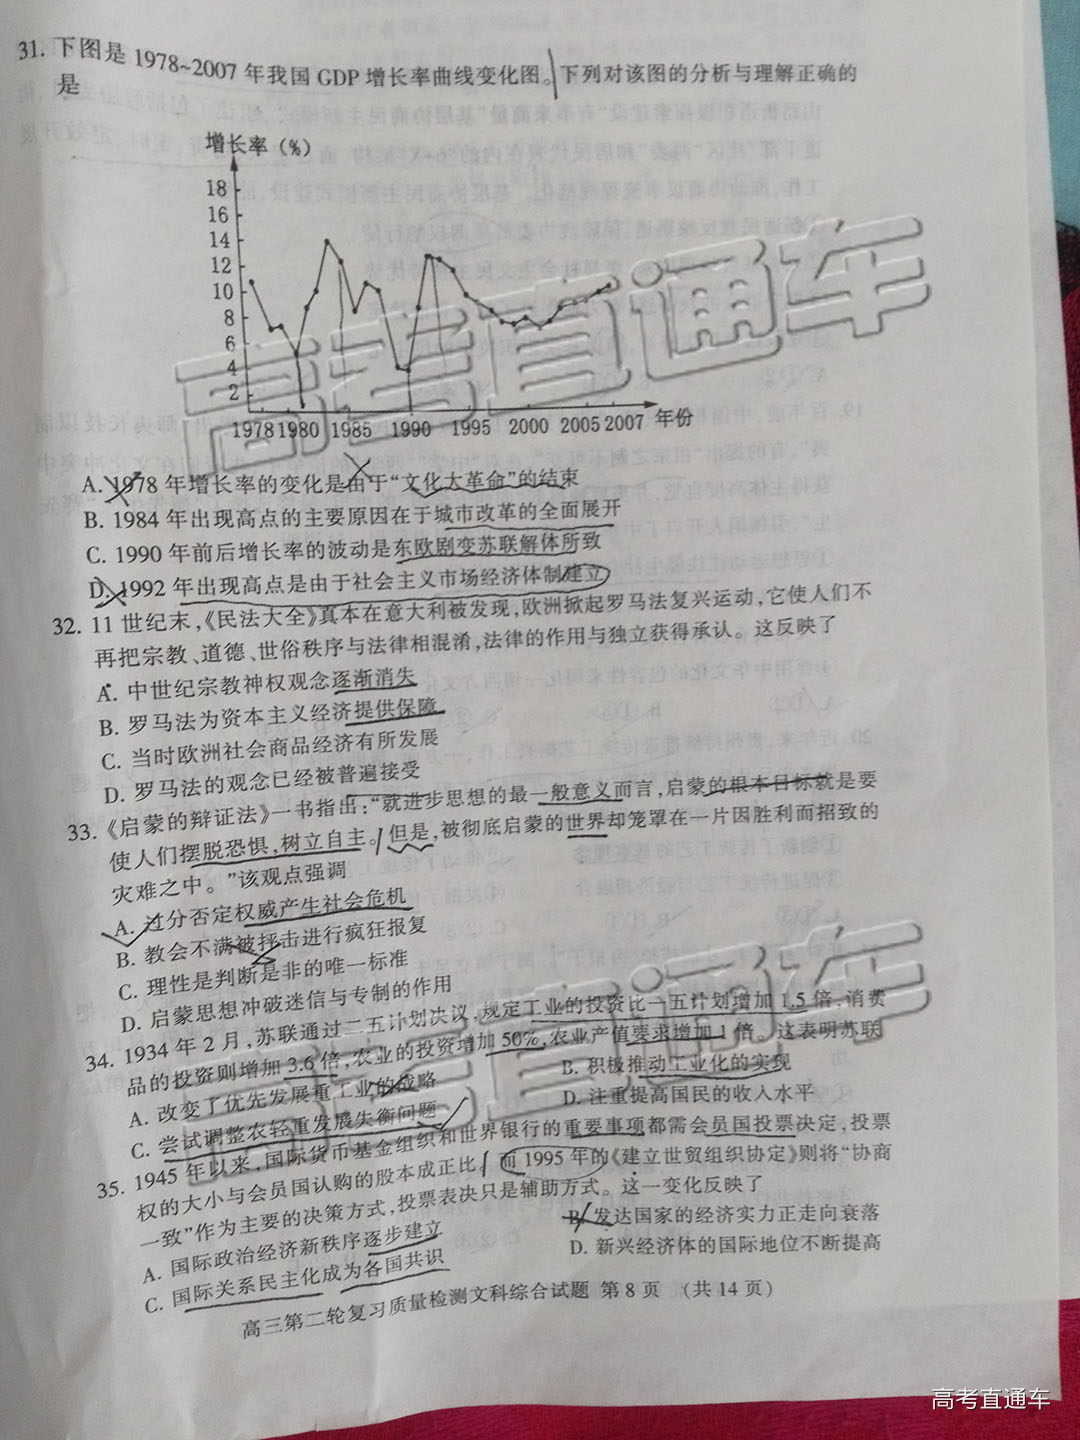 31. 下图是 1978~2007 年我国 GDP 增长率曲线变化图。下列对该图的分析与理解正确的
是
增长率(%)
18
16
14
12
10
8
6
4
2
1978 1980 1985 1990 1995 2000 2005 2007 年份
A. 1978 年增长率的变化是由于“文化大革命”的结束
B. 1984 年出现高点的主要原因在于城市改革的全面展开
C. 1990 年前后增长率的波动是东欧剧变苏联解体所致
D. 1992 年出现高点是由于社会主义市场经济体制建立
32. 11 世纪末,《民法大全》真本在意大利被发现,欧洲掀起罗马法复兴运动,它使人们不
再把宗教、道德、世俗秩序与法律相混淆,法律的作用与独立获得承认。这反映了
A. 中世纪宗教神权观念逐渐消失
B. 罗马法为资本主义经济提供保障
C. 当时欧洲社会商品经济有所发展
D. 罗马法的观念已经被普遍接受
33. 《启蒙的辩证法》一书指出:“就进步思想的最一般意义而言,启蒙的根本目标就是要
使人们摆脱恐惧,树立自主。但是,被彻底启蒙的世界却笼罩在一片因胜利而招致的
灾难之中。”该观点强调
A. 过分否定权威产生社会危机
B. 教会不满被抨击进行疯狂报复
C. 理性是判断是非的唯一标准
D. 启蒙思想冲破迷信与专制的作用
34. 1934 年 2 月,苏联通过二五计划决议,规定工业的投资比一五计划增加 1.5 倍,消费
品的投资则增加 3.6 倍,农业的投资增加 50%,农业产值要求增加 1 倍。这表明苏联
A. 改变了优先发展重工业的战略 B. 积极推动工业化的实现
C. 尝试调整农轻重发展失衡问题 D. 注重提高国民的收入水平
35. 1945 年以来,国际货币基金组织和世界银行的重要事项都需会员国投票决定,投票
权的大小与会员国认购的股本成正比,而 1995 年的《建立世贸组织协定》则将“协商
一致”作为主要的决策方式,投票表决只是辅助方式。这一变化反映了
A. 国际政治经济新秩序逐步建立 B. 发达国家的经济实力正走向衰落
C. 国际关系民主化成为各国共识 D. 新兴经济体的国际地位不断提高
高三第二轮复习质量检测文科综合试题 第 8 页 (共 14 页)
高考直通车
高考直通车
高考直通车